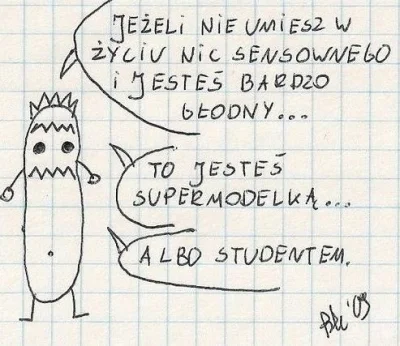 JEŻELI NIE UMIESZ W
ŻYCIU NIC SENSOWNEGO
I JESTEŚ BARDZO
GŁODNY...
TO JESTEŚ
SUPERMODELKĄ...
ALBO STUDENTEM.
'09